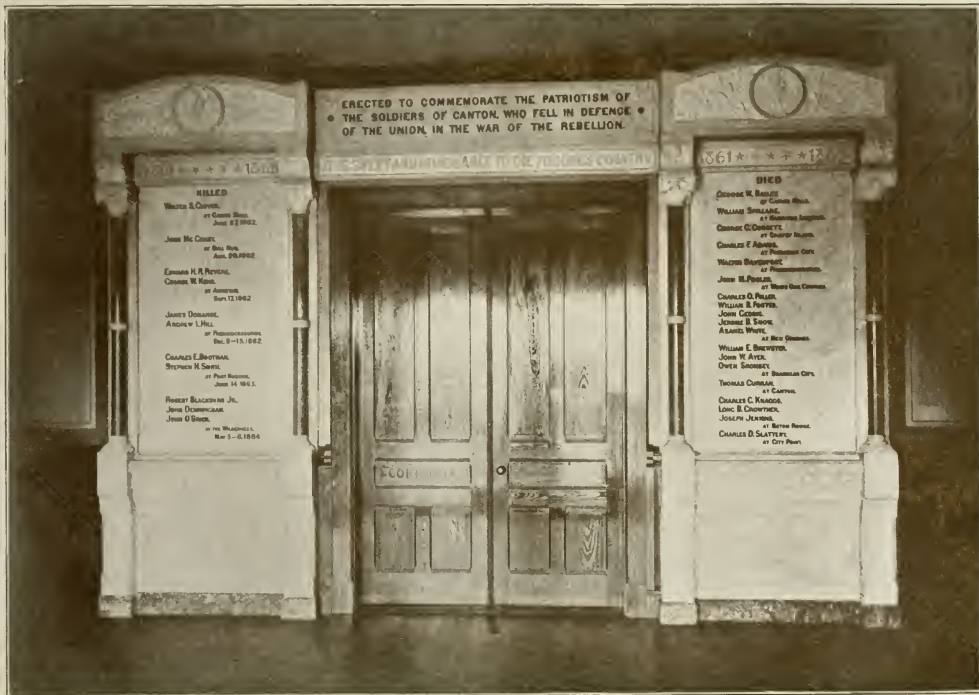 ERECTED TO COMMEMORATE THE PATRIOTISM OF
THE SOLDIERS OF CANTON, WHO FELL IN DEFENCE
OF THE UNION, IN THE WAR OF THE REBELLION.
IT IS SWEET AND HONORABLE TO DIE FOR ONE'S COUNTRY
1861 ★ ★ ★ ★ 1865
KILLED
WALTER S.
AT GAINES MILL
JUNE 27, 1862.
JOHN MC
AT BULL RUN,
AUG. 29, 1862.
EDWARD H. R. REVERE,
GEORGE W.
AT ANTIETAM
SEPT. 17, 1862
JAMES
ANDREW L. HILL
AT FREDERICKSBURG
DEC. 11–15, 1862.
CHARLES E. BOOTMAN,
STEPHEN H. SMITH,
AT PORT HUDSON,
JUNE 14, 1863.
ROBERT BLACKBURN JR.,
JOHN
JOHN O'BRIEN,
IN THE WILDERNESS,
MAY 5–6, 1864
1861 ★ ★ ★ ★ 1865
DIED
GEORGE W. BAILEY,
AT
WILLIAM SPILLANE,
AT HARRISONS LANDING.
GEORGE C.
AT
CHARLES F. ADAMS,
AT
WALTER DAVENPORT,
AT FREDERICKSBURG.
JOHN M. POOLER,
AT CHURCH.
CHARLES O. FULLER,
WILLIAM B. FOSTER,
JOHN GEORGE,
JEROME B. SNOW,
ASAHEL WHITE,
AT NEW ORLEANS.
WILLIAM E. BREWSTER,
JOHN W. AYER,
OWEN
AT BRASHEAR CITY.
THOMAS CURRAN,
AT CANTON.
CHARLES C. KNAGGS,
B. CROWTHER,
JOSEPH JENKINS,
AT BATON ROUGE.
CHARLES D. SLATTERY,
AT CITY POINT.